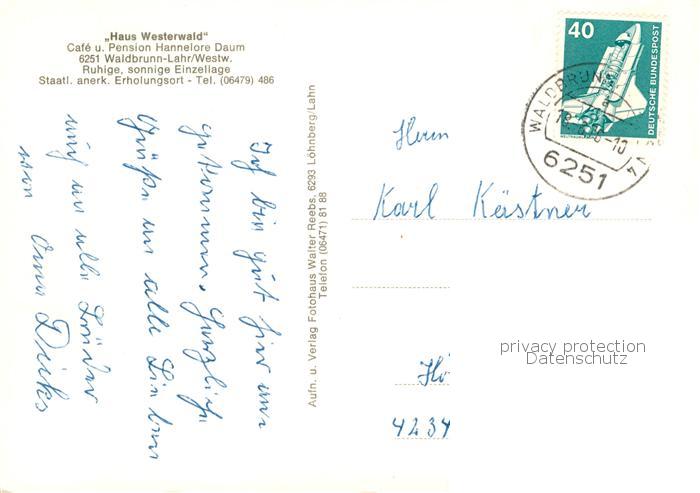 „Haus Westerwald"
Café u. Pension Hannelore Daum
6251 Waldbrunn-Lahr/Westw.
Ruhige, sonnige Einzellage
Staatl. anerk. Erholungsort - Tel. (06479) 486
Ich bin gut hier an
gekommen. Herzliche
Grüße an alle Lieben
auch an alle Brüder
von Oma Dicks
Aufn. u. Verlag Fotohaus Walter Reebs, 6293 Löhnberg/Lahn
Telefon (06471) 81 88
40
DEUTSCHE BUNDESPOST
WALDBRUNN
6251
Herrn
Karl Kästner
privacy protection
Datenschutz
Hö
4234